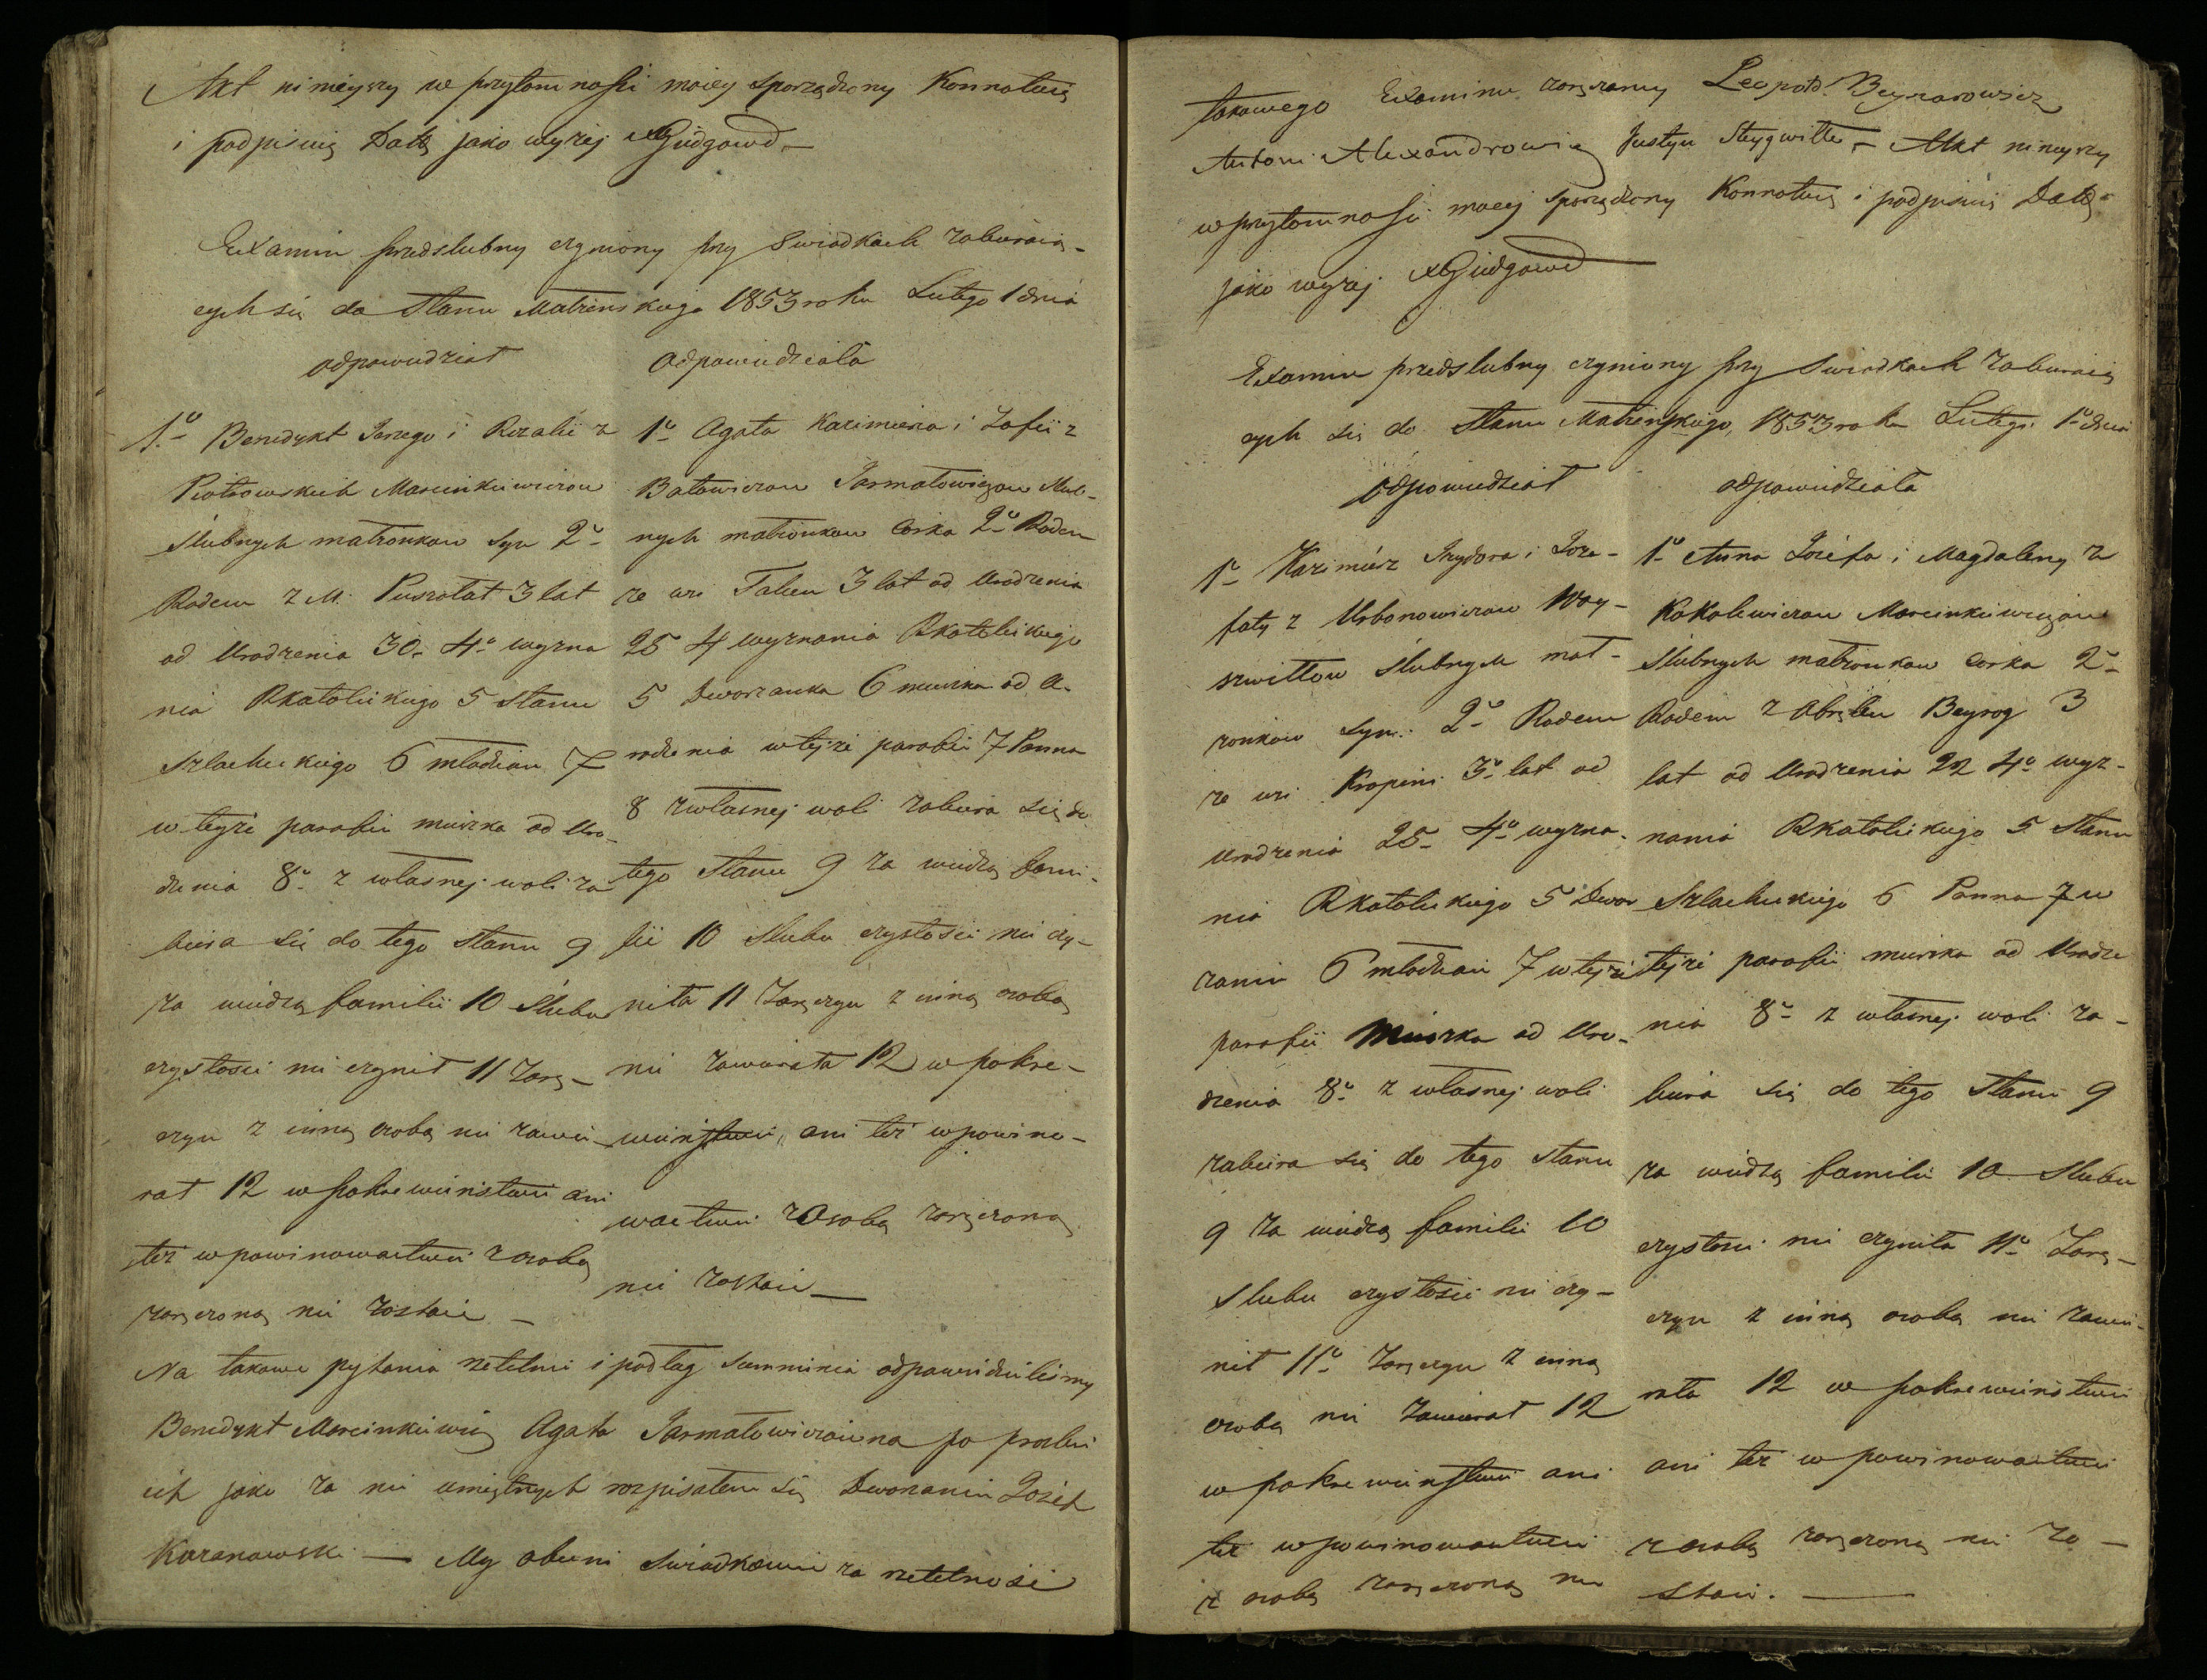 Akt ninieyszy w przytomnosci moiey sporządzony Konnotuię
i podpisuię Datą jako wyżej X Giedgowd —
Examin przedslubny czyniony przy Swiadkach zabieraią-
cych się do Stanu Małżenskiego 1853 roku Lutego 1 dnia
odpowiedział
1º Benedykt Jerzego i Rozalii z
Piotrowskich Marcinkiewiczow
Slubnych małżonkow Syn 2º
Rodem z M. Puszołat 3 lat
od Urodzenia 30. 4º wyzna
nia RKatolickiego 5 Stanu
Szlacheckiego 6 młodzian 7
w tejże parafii mieszka od Uro-
dzenia 8º z własnej woli za
biera się do tego stanu 9
za wiedzą familii 10 Slubu
czystosci nie czynił 11 Zarę-
czyn z inną osobą nie zawie-
rał 12 w pokrewienstwie ani
też w powinowactwie z osobą
zaręczoną nie zostaie —
odpowiedziała
1º Agata Kazimierza i Zofii z
Batowiczow Jarmałowiczow Slub-
nych małżonkow Corka 2º Rodem
ze wsi Talien 3 lat od Urodzenia
25 4 wyznania RKatolickiego
5 Dworzanka 6 mieszka od U-
rodzenia w tejże parafii 7 Panna
8 z własnej woli zabiera się do
tego Stanu 9 za wiedzą fami-
lii 10 Slubu czystosci nie czy-
niła 11 Zaręczyn z inną osobą
nie zawierała 12 w pokre-
wienstwie, ani też w powino-
wactwie z Osobą zaręczoną
nie zostaie —
Na takowe pytania rzetelnie i podług sumnienia odpowiedzieliśmy
Benedykt Marcinkiewicz Agata Jarmałowiczowna po prozbie
ich jako za nie umiętnych rozpisałem się Dworzanin Jozef
Kozanowski — My obecni Swiadkowie za rzetelnosc
takowego Examinu zaręczamy Leopold Beynarowicz
Antoni Alexandrowicz Justyn Steygwiłło — Akt ninieyszy
w przytomnosci moiej sporządzony Konnotuię i podpisuię Datą
jako wyżej X Giedgowd
Examin przedslubny czyniony przy Swiadkach zabieraią
cych się do Stanu Małżenskiego, 1853 roku Lutego 1º dnia
odpowiedział
1º Kazimierz Izydora i Joze-
faty z Urbonowiczow Woy-
szwiłłow slubnych mał-
żonkow Syn. 2º Rodem
ze wsi Kropini 3º lat od
urodzenia 25 4º wyzna-
nia RKatolickiego 5 Dwor
zanin 6 młodzian 7 w tejże
parafii mieszka od Uro-
dzenia 8º z własnej woli
zabiera się do tego stanu
9 za wiedzą familii 10
Slubu czystosci nie czy-
nił 11º Zaręczyn z inną
osobą nie zawierał 12
w pokrewienstwie ani
też w powinowactwie
z osobą zaręczoną nie
odpowiedziała
1º Anna Jozefa i Magdaleny z
Kokolewiczow Marcinkiewiczow
Slubnych małżonkow Corka 2º
Rodem z Obrębu Beyrog 3
lat od Urodzenia 22 4º wyz-
nania RKatolickiego 5 Stanu
Szlacheckiego 6 Panna 7 w
tejże parafii mieszka od Urodze
nia 8º z własnej woli za-
biera się do tego Stanu 9
za wiedzą familii 10 Slubu
czystosci nie czyniła 11º Zarę-
czyn z inną osobą nie zawie-
rała 12 w pokrewienstwie
ani też w powinowactwie
z osobą zaręczoną nie zo-
staie. —